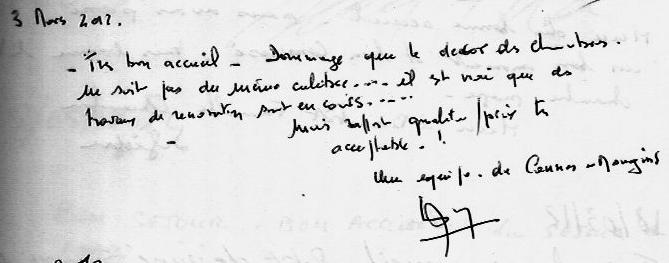 3 Mars 2012.
- Très bon accueil - Dommage que le decor des chambres.
ne soit pas du même calibre.... il est vrai que des
travaux de renovation sont en cours.....
- Mais rapport qualité/prix ts
acceptable. !
Une equipe. de Cannes - Mougins